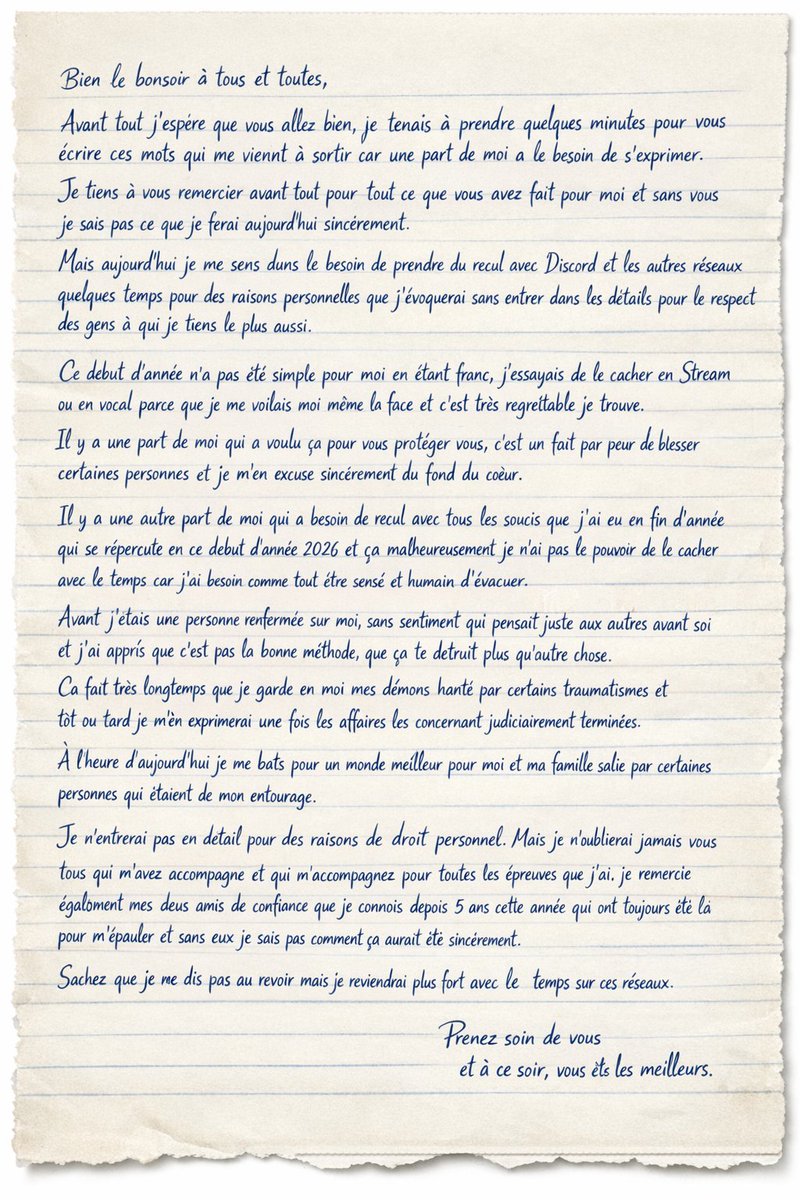 Bien le bonsoir à tous et toutes,
Avant tout j'espére que vous allez bien, je tenais à prendre quelques minutes pour vous
écrire ces mots qui me viennt à sortir car une part de moi a le besoin de s'exprimer.
Je tiens à vous remercier avant tout pour tout ce que vous avez fait pour moi et sans vous
je sais pas ce que je ferai aujourd'hui sincérement.
Mais aujourd'hui je me sens duns le besoin de prendre du recul avec Discord et les autres réseaux
quelques temps pour des raisons personnelles que j'évoquerai sans entrer dans les détails pour le respect
des gens à qui je tiens le plus aussi.
Ce debut d'année n'a pas été simple pour moi en étant franc, j'essayais de le cacher en Stream
ou en vocal parce que je me voilais moi même la face et c'est très regrettable je trouve.
Il y a une part de moi qui a voulu ça pour vous protéger vous, c'est un fait par peur de blesser
certaines personnes et je m'en excuse sincérement du fond du coèur.
Il y a une autre part de moi qui a besoin de recul avec tous les soucis que j'ai eu en fin d'année
qui se répercute en ce debut d'année 2026 et ça malheureusement je n'ai pas le pouvoir de le cacher
avec le temps car j'ai besoin comme tout étre sensé et humain d'évacuer.
Avant j'étais une personne renfermée sur moi, sans sentiment qui pensait juste aux autres avant soi
et j'ai apprís que c'est pas la bonne méthode, que ça te detruit plus qu'autre chose.
Ca fait très longtemps que je garde en moi mes démons hanté par certains traumatismes et
tòt ou tard je m'èn exprimerai une fois les affaires les concernant judiciairement terminées.
À l'heure d'aujourd'hui je me bats pour un monde meilleur pour moi et ma famille salie par certaines
personnes qui étaient de mon entourage.
Je n'entrerai pas en detail pour des raisons de droit personnel. Mais je n'oublierai jamais vous
tous qui m'avez accompagne et qui m'accompagnez pour toutes les épreuves que j'ai. je remercie
égalbment mes deus amis de confiance que je connois depois 5 ans cette année qui ont toujours été là
pour m'épauler et sans eux je sais pas comment ça aurait été sincérement.
Sachez que je me dis pas au revoir mais je reviendrai plus fort avec le temps sur ces réseaux.
Prenez soin de vous
et à ce soir, vous èts les meilleurs.